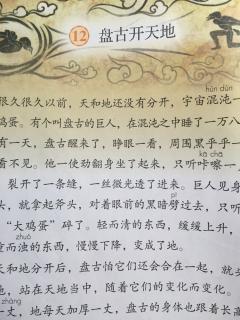 12 盘古开天地
hùn dùn
很久很久以前，天和地还没有分开，宇宙混沌一
鸡蛋。有个叫盘古的巨人，在混沌之中睡了一万八
有一天，盘古醒来了，睁眼一看，周围黑乎乎一
kā chā
看不见。他一使劲翻身坐了起来，只听咔嚓一
裂开了一条缝，一丝微光透了进来。巨人见身
pī
，就拿起斧头，对着眼前的黑暗劈过去，只听
“大鸡蛋”碎了。轻而清的东西，缓缓上升，
zhuó
重而浊的东西，慢慢下降，变成了地。
天和地分开后，盘古怕它们还会合在一起，就
地，站在天地当中，随着它们的变化而变化。
zhàng
一丈，地每天加厚一丈，盘古的身体也跟着长高